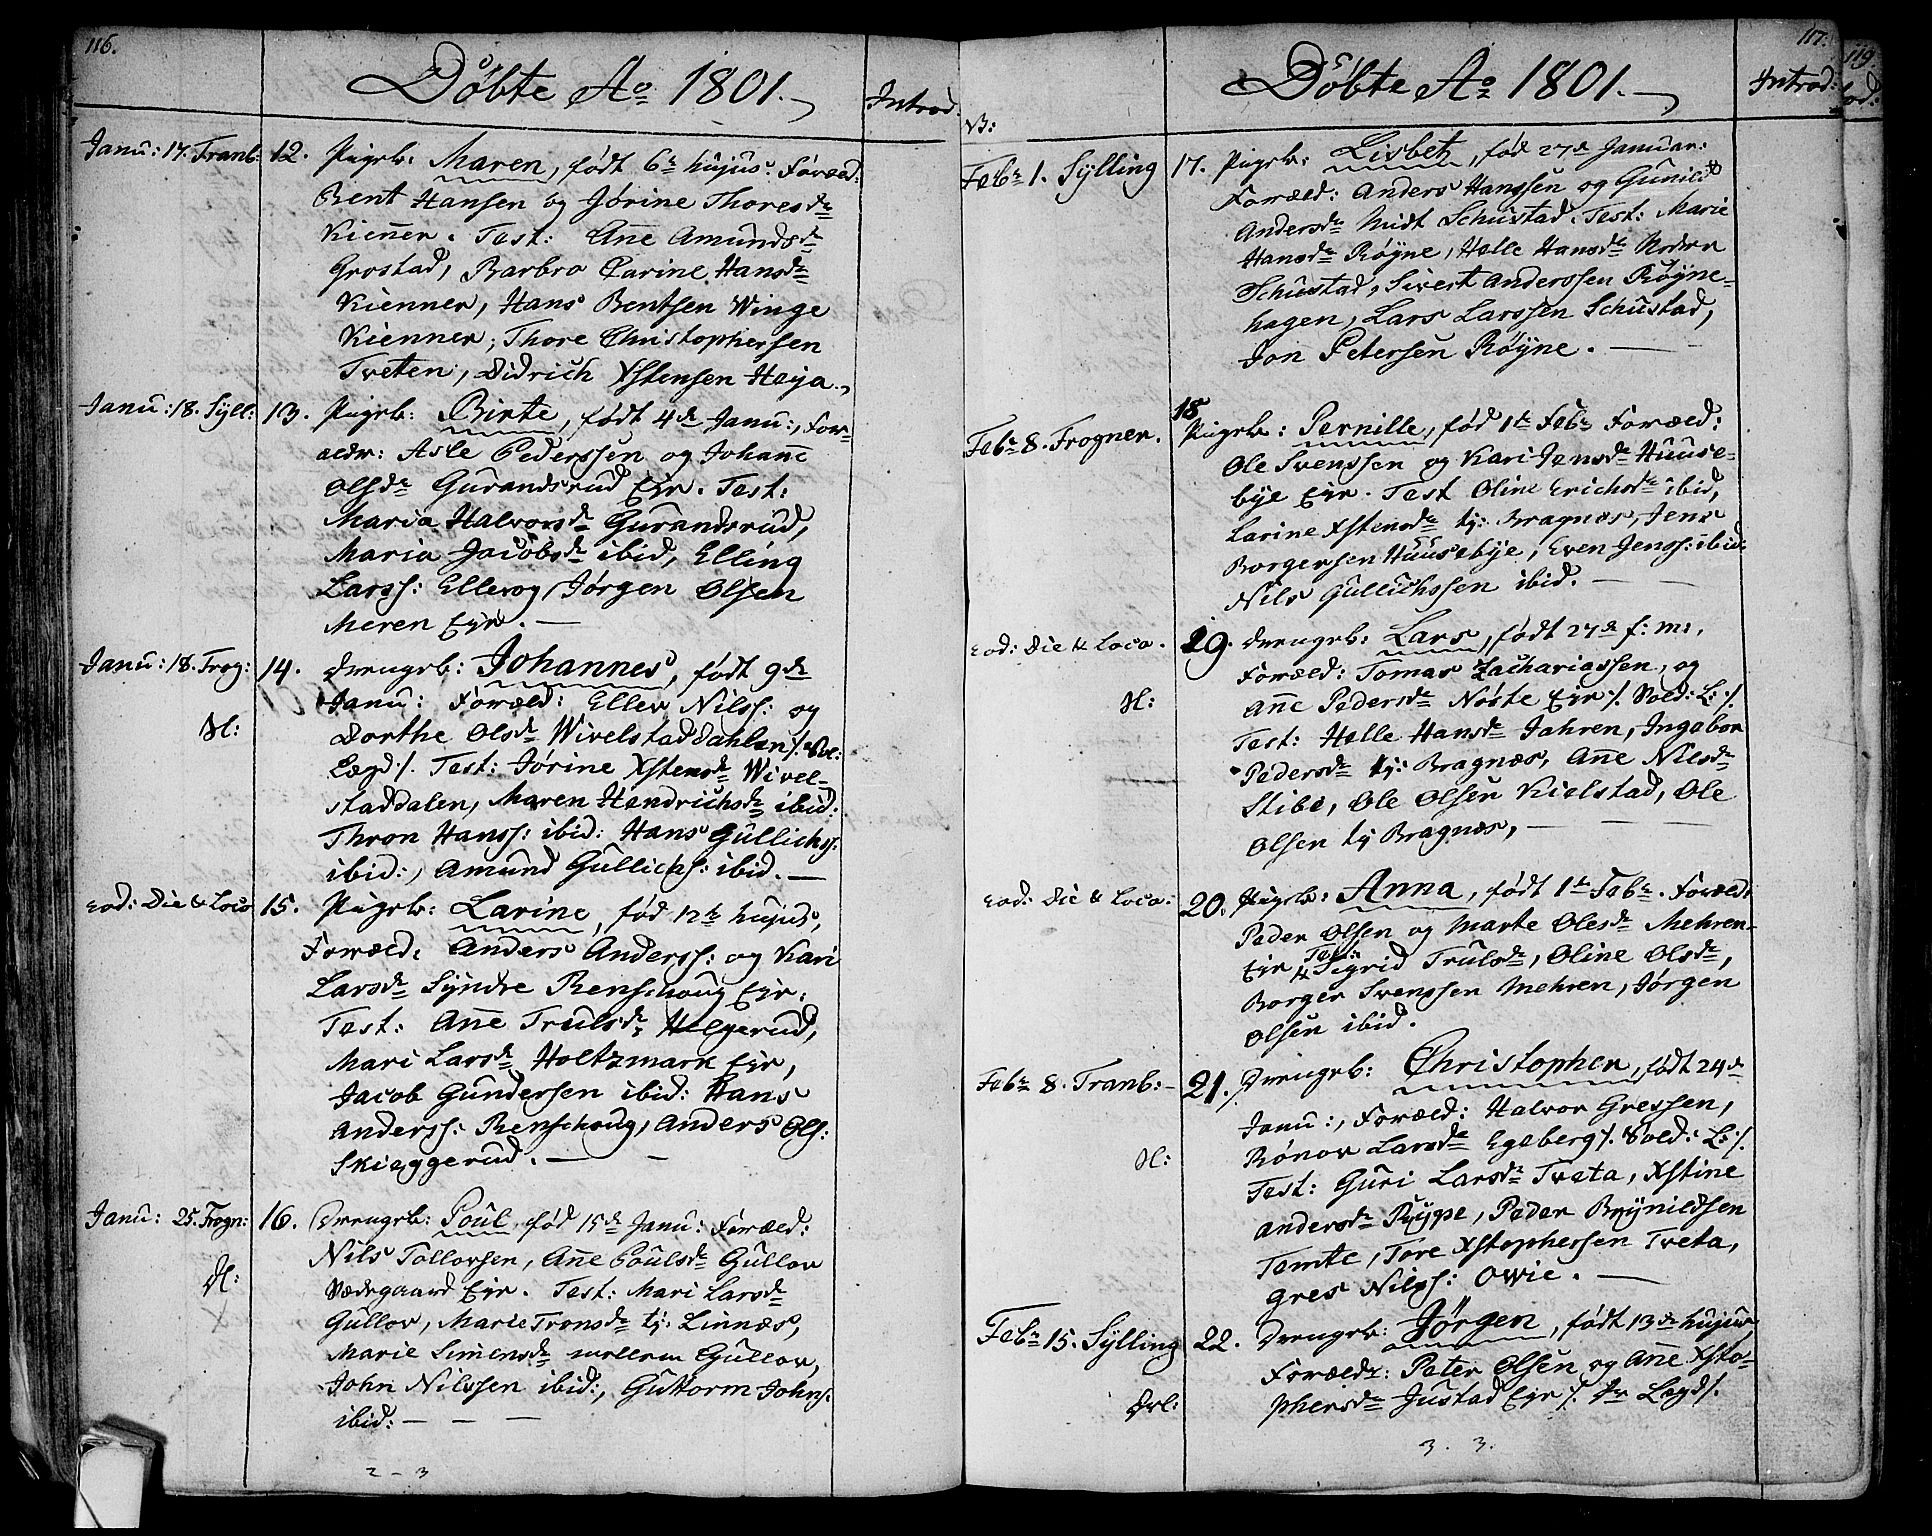 116.
Døbte Ao 1801.
Introd:
Janu: 17. Tranb: 12. Pigeb: Maren, født 6te hujus. Foræld:
Bent Hansen og Jørine Thoresdr
Kienner. Test: Ane Amundsdr
Grostad, Barbro Carine Hansdr
Kienner, Hans Bentsen Winge
Kienner, Thore Christophersen
Tveten, Didrich Xstensen Heja.
Janu: 18. Syll: 13. Pigeb: Birte, født 4de Janu:, For-
ældr: Asle Pederssen og Johane
Olsdr Gurandsrud Eje. Test:
Maria Halvorsdr Gurandsrud,
Maria Jacobsdr ibid, Elling
Larss: Ellevog, Jørgen Olsen
Meren Eje.
Janu: 18. Frog: 14. Drengeb: Johannes, født 9de
Janu: Foræld: Ellev Nilss: og
Dorthe Olsdr Wivelstaddahlen /: Sol:
Lægd :/. Test: Jørine Xstensdr Wivel-
staddalen, Maren Hendrichsdr ibid:
Thron Hanss: ibid: Hans Gullichs:
ibid:, Amund Gullichs: ibid.
eod: Die & Loco 15. Pigeb: Larine, fød 12te hujus,
Foræld: Anders Anderss: og Kari
Larsdr Syndre Renschoug Eje.
Test: Ane Trulsdr Helgerud,
Mari Larsdr Holtzmark Eje,
Jacob Gundersen ibid: Hans
Anderss: Renschoug, Anders Ols:
Skieggerud.
Janu: 25. Frogn: 16. Drengeb: Poul, fød 15de Janu: Foræld:
Nils Tollovsen, Ane Poulsdr Gullov
Nedregaard Eje. Test: Mari Larsdr
Gullov, Marie Tronsdr tj: Linnæs,
Marie Simensdr mellem Gullov,
John Nilssen ibid:, Guttorm Johns:
ibid:
2 - 3
117.
Døbte Ao 1801.
Introd:
119.
od:
Febr 1. Sylling 17. Pigeb: Lisbet, fød 27de Januar:
Foræld: Anders Hanssen og Gunild
Andersdr Midt Schustad. Test: Marie
Hansdr Røyne, Helle Hansdr Nedre
Schustad, Sivert Anderssen Røyne-
hagen, Lars Larssen Schustad,
Jon Petersen Røyne.
18
Febr 8. Frogner. Pigeb: Pernille, fød 1te Febr Foræld:
Ole Svenssen og Kari Jensdr Huuse-
bye Eje. Test Oline Erichsdr ibid,
Larine Xstensdr tj: Bragnæs, Jens
Borgersen Huusebye, Even Jenss: ibid:
Nils Gullichssen ibid.
eod: Die & Loco. 19. Drengeb: Lars, født 27de f: m:,
Foræld: Tomas Zachariassen, og
Ane Pedersdr Nøste Eje /: Sold: L: :/.
Test: Helle Hansdr Jahren, Ingebor
Pedersdr tj: Bragnæs, Ane Nilsdr
Stibe, Ole Olsen Kielstad, Ole
Olsen tj Bragnæs,
eod: Die & Loco: 20. Pigeb: Anna, født 1te Febr. Foræld:
Peder Olsen og Marte Olesdr Mehren-
Eje Test: Sigrid Trulsdr, Oline Olsdr,
Borger Svenssen Mehren, Jørgen
Olsen ibid.
Febr 8. Tranb: 21. Drengeb: Christopher, født 24de
Janu:, Foræld: Halvor Gressen,
Rønov Larsdr Egeberg /: Sold: L: :/.
Test: Guri Larsdr Tveta, Xstine
Andersdr Rype, Peder Brynildsen
Temte, Tore Xstophersen Tveta,
Gres Nilss: Owie.
Febr 15. Sylling 22. Drengeb: Jørgen, født 13de hujus
Forældr: Peter Olsen og Ane Xsto-
phersdr Justad Eje /: Dr Lægd :/.
3. 3.